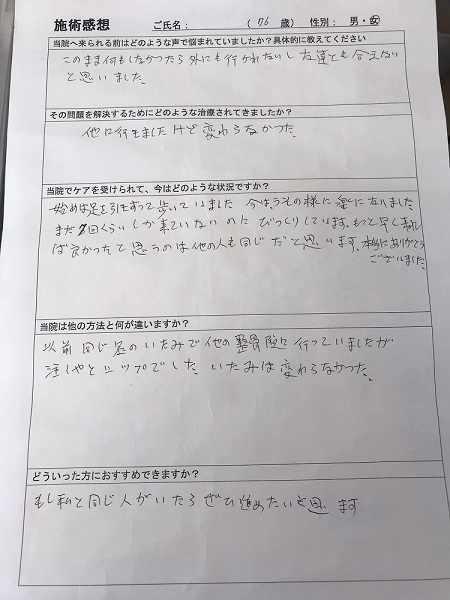 施術感想 ご氏名: (76 歳) 性別: 男・女
当院へ来られる前はどのような声で悩まれていましたか?具体的に教えてください
このまま何もしなかったら外にも行かれないし 友達とも会えない
と思いました。
その問題を解決するためにどのような治療されてきましたか?
他に行きましたけど変わらなかった。
当院でケアを受けられて、今はどのような状況ですか?
始めは足を引きずって歩いていました 今はうその様に楽になりました
まだ7回くらいしか来ていないのに びっくりしています。もっと早く来れ
ば良かったと思うのは他の人も同じだと思います。本当にありがとう
ございました。
当院は他の方法と何が違いますか?
以前同じ足のいたみで他の整骨院に行っていましたが
注しゃとシップでした。いたみは変わらなかった。
どういった方におすすめできますか?
もし私と同じ人がいたらぜひ進めたいと思います